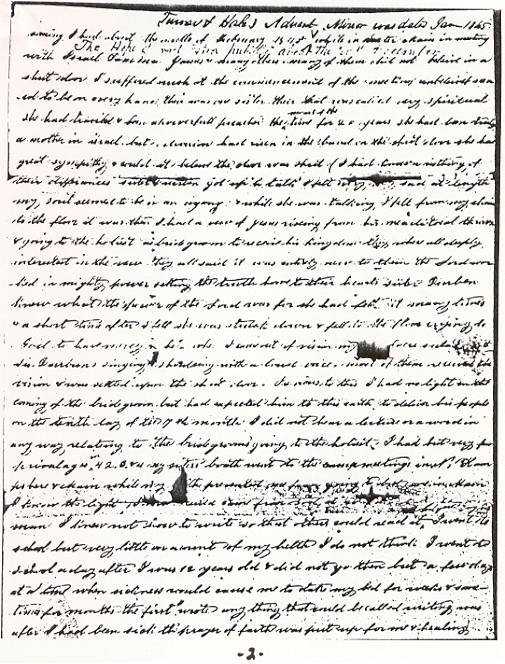 Turner & Hale's Advent Mirror was dated Jan 1845
coming I had about the middle of February 1845 while in Exeter Maine in meeting
The Hope of
with Israel Dammon James & many others many of them did not believe in a
shut door I suffered much at the commencement of the meeting unbelief seem
ed to be on every hand there was one sister there that was called very spiritual
most of the
she had traveled & been a powerful preacher time for 20 years she had been truly
a mother in Israel but a division had risen in the band on the shut door she had
great sympathy & could not believe the door was shut (I had known nothing of
their differences sister Durben got up to talk I felt very very sad at length
my soul seemed to be in an agony & while she was talking I fell from my chair
to the floor it was then I had a view of Jesus rising from his mediatorial throne
& going to the holiest as bridegroom to receive his kingdom they were all deeply
interested in the view they all said it was entirely new to them the Lord wor
ked in mighty power setting the truth home to their hearts sister Durben
knew what the power of the Lord was for she had felt it many times
& a short time after I fell she was struck down & fell to the floor crying to
God to have mercy on her when I was out of vision my
sis Durbens singing & shouting with a loud voice most of them received the
vision & was settled upon the shut door Previous to this I had no light on the
coming of the bridegroom but had expected him to this earth to deliver his people
on the tenth day of the 7th month I did not hear a lecture or a word in
any way relating to the bridegrooms going to the holiest I had but very few
privalages in 42 & 44 my sisters both went to the campmeetings in N. Ham
pshire & Maine while my health prevented me from going to but one in Maine
I know the light
man I knew not how to write so that others could read it I went to
school but very little on account of my health I do not think I went to
school a day after I was 12 years old & did not go then but a few days
at a time when sickness would cause me to take my bed for weeks & some
times for months the first I wrote any thing that could be called writing was
after I had been sick the prayer of faith was put up for me & healing
-2-